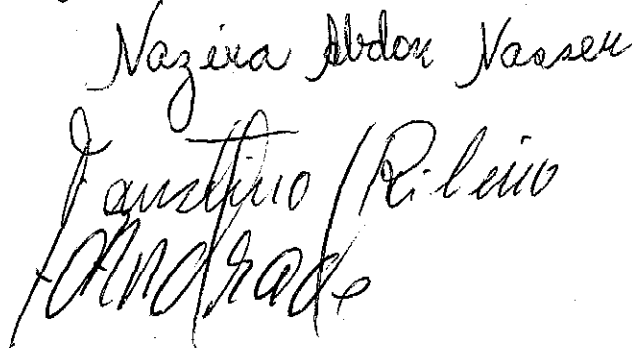 Nazira Abdon Nasser
Faustino Ribeiro
Andrade